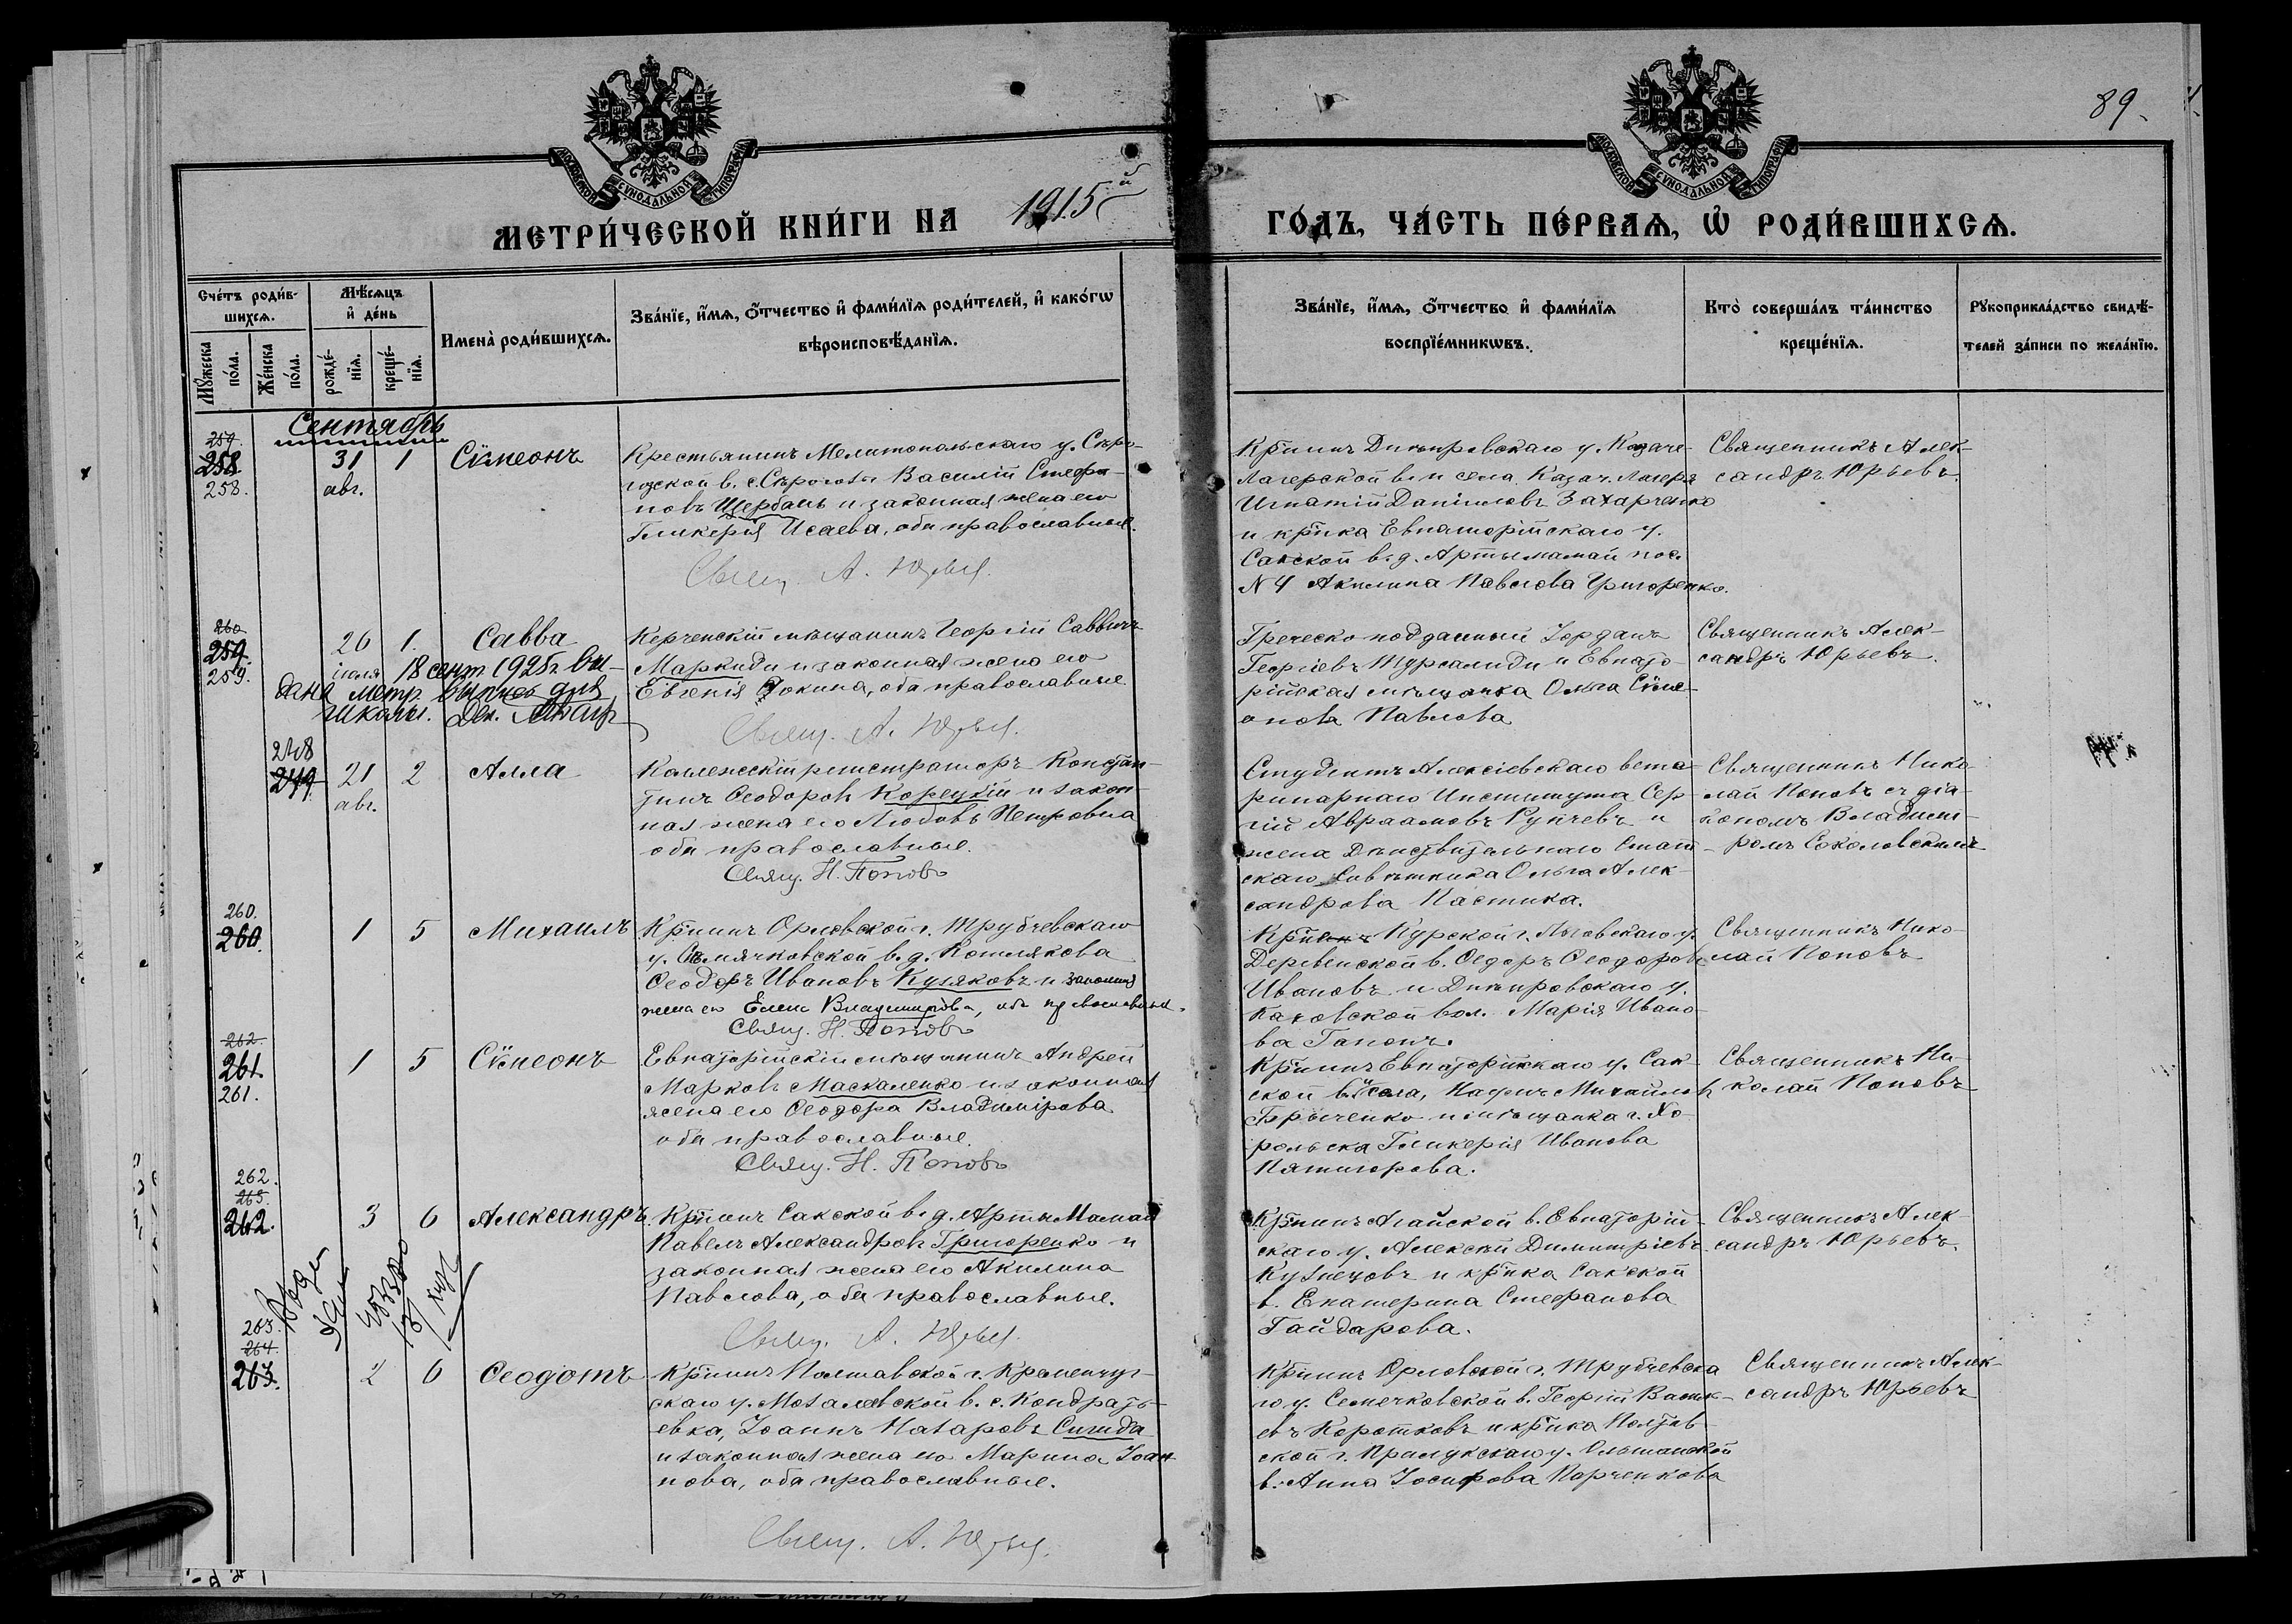 89
МОСКОВСКОЙ СѴНОДАЛЬНОЙ ТИПОГРАФІИ
МОСКОВСКОЙ СѴНОДАЛЬНОЙ ТИПОГРАФІИ
МЕТРИ́ЧЕСКОЙ КНИ́ГИ НА 1915й
ГО́ДЪ, ЧА́СТЬ ПЕ́РВАѦ, Ѡ҆ РОДИ́ВШИХСѦ.
Сче́тъ роди́в-
шихсѧ.
Мѣ́сѧцъ
и҆ де́нь
Имена̀ роди́вшихсѧ.
Зва́нїе, и҆́мѧ, ѻ҆́тчество и҆ фами́лїѧ роди́телей, и҆ како́гѡ
вѣроисповѣ́данїѧ.
Мꙋ́жеска по́ла.
Же́нска по́ла.
рожде́-
нїѧ.
креще́-
нїѧ.
Зва́нїе, и҆́мѧ, ѻ҆́тчество и҆ фами́лїѧ
воспрїе́мникѡвъ.
Кто̀ соверша́лъ та́инство
креще́нїѧ.
Рꙋкоприкла́дство свидѣ́-
телей за́писи по жела́нїю.
Сентябрь
259.
258
258.
31
авг.
1
Сѵмеонъ
Крестьянинъ Мелитопольскаго у. Сѣро-
гозской в. с. Сѣрогозъ Василій Стефа-
новъ Щербань и законная жена его
Гликерія Исаева, оба православные.
Свящ. А. Юрьев.
Кр̃нинъ Днѣпровскаго у. Казаче-
Лагерской в. и села Казач. Лагеря
Игнатій Даніиловъ Захарченко
и кр̃нка Евпаторійскаго у.
Сакской в. д. Артымамай пос.
N 4 Акилина Павлова Григоренко.
Священникъ Алек-
сандръ Юрьевъ.
260
259.
259.
26
іюля
1.
Савва
18 сент. 1925г. вы-
дана метр. выпись для
школы.
Керченскій мѣщанинъ Георгій Саввичъ
Маркиди и законная жена его
Евгенія Фокина, оба православные.
Свящ. А. Юрьев.
Греческо подданный Іорданъ
Георгіевъ Мурсалиди и Евпато-
рійская мѣщанка Ольга Сѵме-
онова Павлова
Священникъ Алек-
сандръ Юрьевъ.
248
249
21
авг.
2
Алла
Коллежскій регистраторъ Констан-
тинъ Ѳеодоровъ Корецкій и закон-
ная жена его Любовь Петровна
оба православные.
Свящ. Н. Попов
Студентъ Алексіевскаго вете-
ринарнаго Института Сер-
гій Авраамовъ Рупчевъ и
жена Дѣйствительнаго Стат-
скаго Совѣтника Ольга Алек-
сандрова Кастика.
Священникъ Нико-
лай Поповъ съ діа-
кономъ Владими-
ромъ Соколовскимъ
260.
260.
1
5
Михаилъ
Кр̃нинъ Орловской г. Трубчевскаго
у. Сѣмячковской в. д. Котлякова
Ѳеодоръ Ивановъ Куляковъ и законная
жена его Елена Владимирова, оба православные.
Свящ. Н. Попов
Кр̃нинъ Курской г. Льговскаго у.
Деревенской в. Ѳедоръ Ѳеодоровъ
Ивановъ и Днѣпровскаго у.
Каховской вол. Марія Ивано-
ва Гапонъ.
Священникъ Нико-
лай Поповъ
262.
261.
261.
1
5
Сѵмеонъ
Евпаторійскій мѣщанинъ Андрей
Марковъ Маскаленко и законная
жена его Ѳеодора Владимірова
оба православные.
Свящ. Н. Попов
Кр̃нинъ Евпаторійскаго у. Сак-
ской в. и села, Михайловъ
Грыченко и мѣщанка г. Хо-
рольска Гликерія Иванова
Пятигорова.
Священникъ Ни-
колай Поповъ
262.
263.
262.
3
6
Александръ
Кр̃нинъ Сакской в. д. Арты Мамай
Павелъ Александровъ Григоренко и
законная жена его Акилина
Павлова, оба православные.
Свящ. А. Юрьев.
Кр̃нинъ Агайской в. Евпаторій-
скаго у. Алексѣй Димитріевъ
Кузнецовъ и кр̃нка Сакской
в. Екатерина Стефанова
Гайдарова.
Священникъ Алек-
сандръ Юрьевъ.
263.
264.
263.
2
6
Ѳеодотъ
Кр̃нинъ Полтавской г. Кременчуг-
скаго у. Мозалевской в. с. Кондрать-
евка, Іоаннъ Назаровъ Сигида
и законная жена его Марина Іоан-
нова, оба православные.
Свящ. А. Юрьев.
Кр̃нинъ Орловской г. Трубчевска-
го у. Семечковской в. Георгій Василь-
евъ Коротковъ и кр̃нка Полтав-
ской г. Прилукскаго у. Ольшанской
в. Анна Іосифова Корченкова
Священникъ Алек-
сандръ Юрьевъ